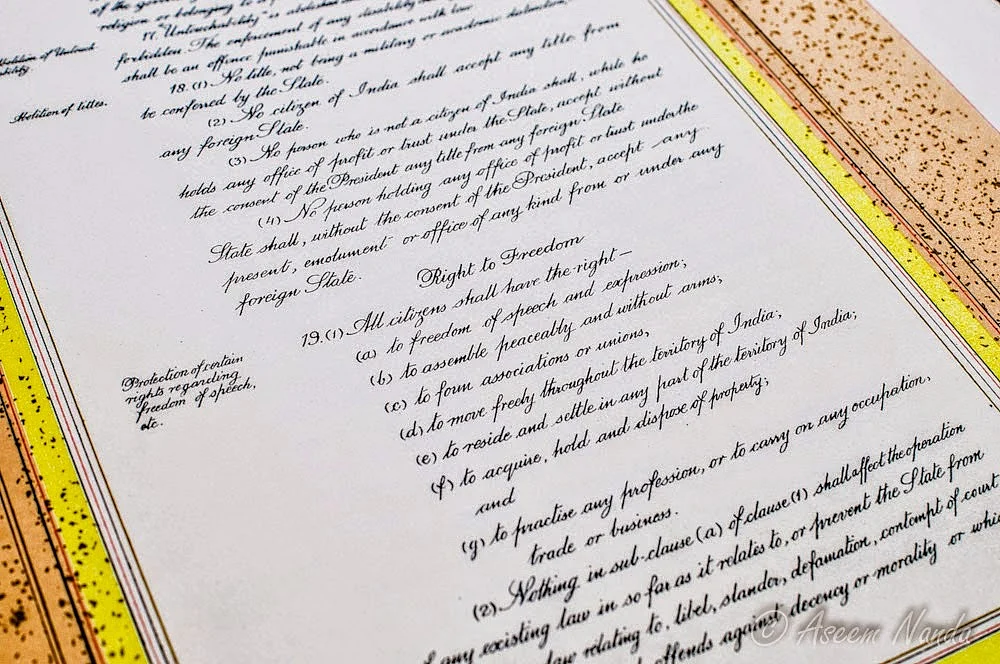 of the
religion or belonging to a
17. "Untouchability" is abolished
Abolition of Untouch-
ability.
forbidden. The enforcement of any disability
shall be an offence punishable in accordance with law.
18. (1) No title, not being a military or academic distinction,
Abolition of titles.
be conferred by the State.
(2) No citizen of India shall accept any title from
any foreign State.
(3) No person who is not a citizen of India shall, while he
holds any office of profit or trust under the State, accept without
the consent of the President any title from any foreign State
(4) No person holding any office of profit or trust under the
State shall, without the consent of the President, accept any
present, emolument or office of any kind from or under any
foreign State.
Right to Freedom
19. (1) All citizens shall have the right —
Protection of certain
rights regarding
freedom of speech,
etc.
(a) to freedom of speech and expression;
(b) to assemble peaceably and without arms;
(c) to form associations or unions;
(d) to move freely throughout the territory of India;
(e) to reside and settle in any part of the territory of India;
(f) to acquire, hold and dispose of property;
and
(g) to practise any profession, or to carry on any occupation,
trade or business.
(2) Nothing in sub-clause (a) of clause (1) shall affect the operation
of any existing law in so far as it relates to, or prevent the State from
law relating to, libel, slander, defamation, contempt of court
offends against decency or morality or
© Aseem Nanda